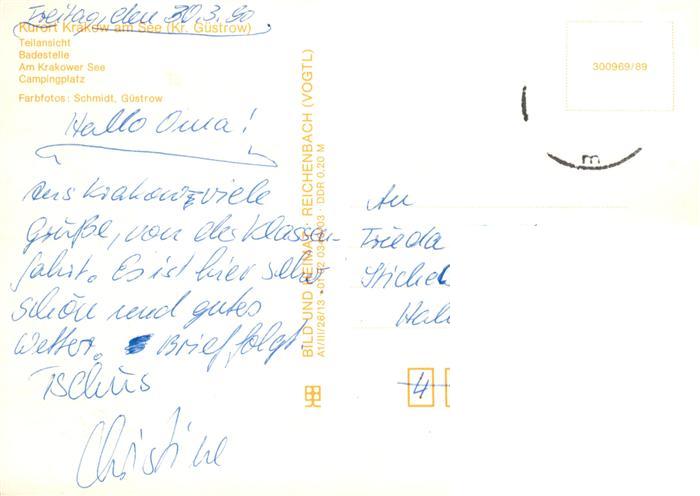 Freitag, den 30.3.90
Kurort Krakow am See (Kr. Güstrow)
Teilansicht
Badestelle
Am Krakower See
Campingplatz
Farbfotos: Schmidt, Güstrow
Hallo Oma!
Aus Krakow viele
Grüße, von der Klassen-
fahrt. Es ist hier sehr
schön und gutes
Wetter. Brief folgt
Tschüs
Christine
BILD UND HEIMAT · REICHENBACH (VOGTL)
A1/III/26/13 DDR 0,20 M
300969/89
m
An
Frieda
Stichel
Hal
4